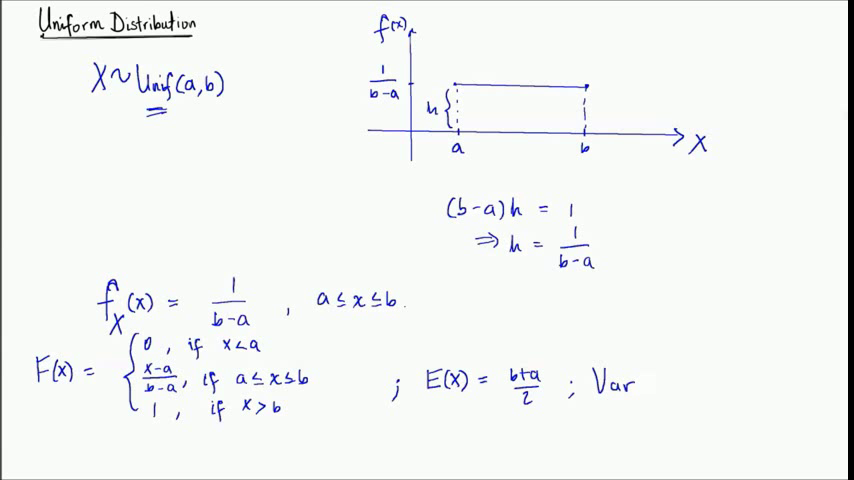 Uniform Distribution
X ~ Unif(a,b)
f(x)
1/(b-a)
h {
a
b
X
(b-a)h = 1
⇒ h = 1/(b-a)
f_X(x) = 1/(b-a) , a ≤ x ≤ b.
F(x) = { 0 , if x < a
(x-a)/(b-a) , if a ≤ x ≤ b
1 , if x > b
; E(X) = (b+a)/2 ; Var